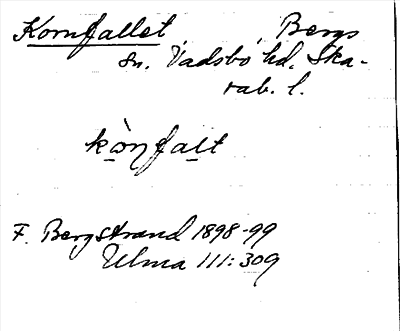 Kornfallet, Bergs
sn. Vadsbo hd. Ska-
rab. l.
kò̱nfa̱lt
F. Bergstrand 1898-99
Ulma 111:309